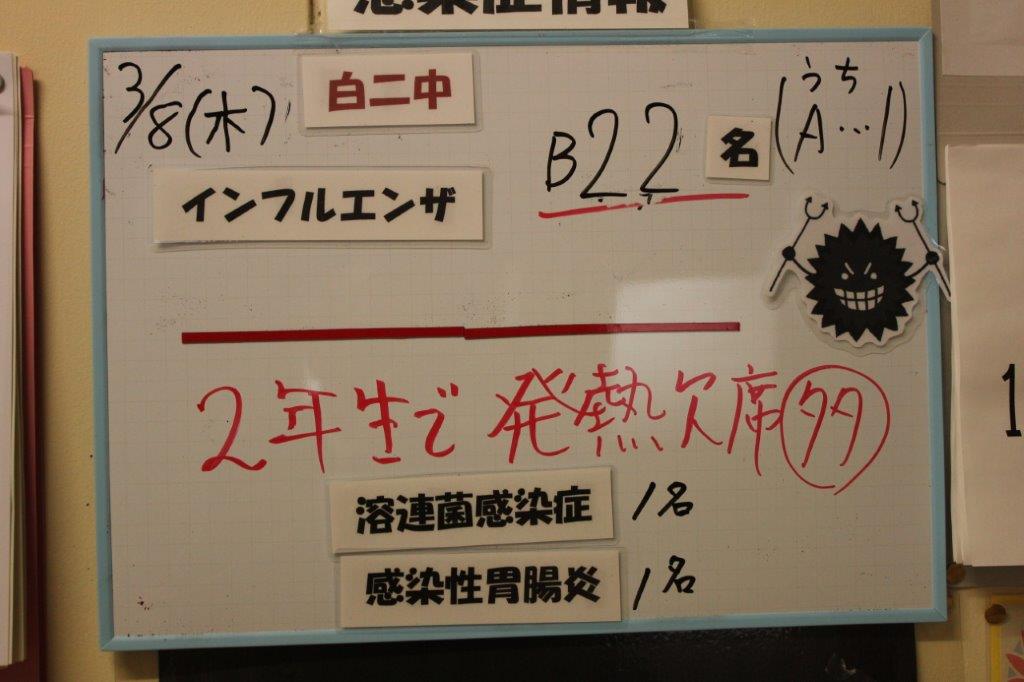 感染症情報
3/8(木) 白二中
インフルエンザ B22名 (うち A…1)
2年生で 発熱欠席 多
溶連菌感染症 1名
感染性胃腸炎 1名
1